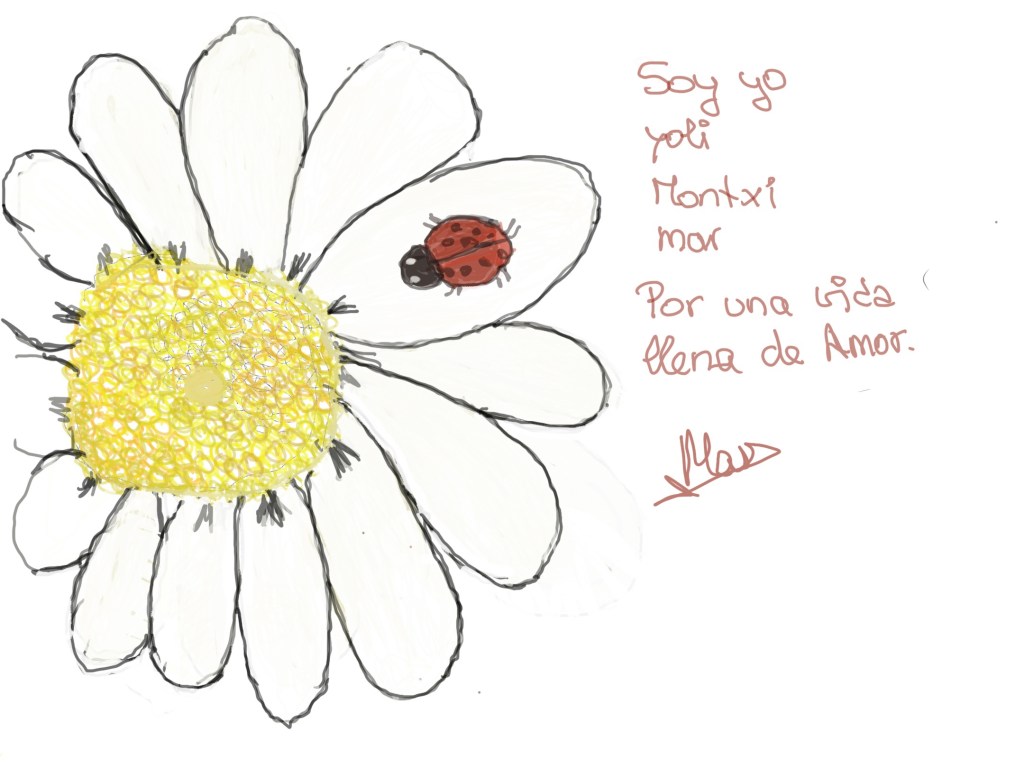 Soy yo
yoli
Montxi
mar
Por una vida
llena de Amor.
Mar